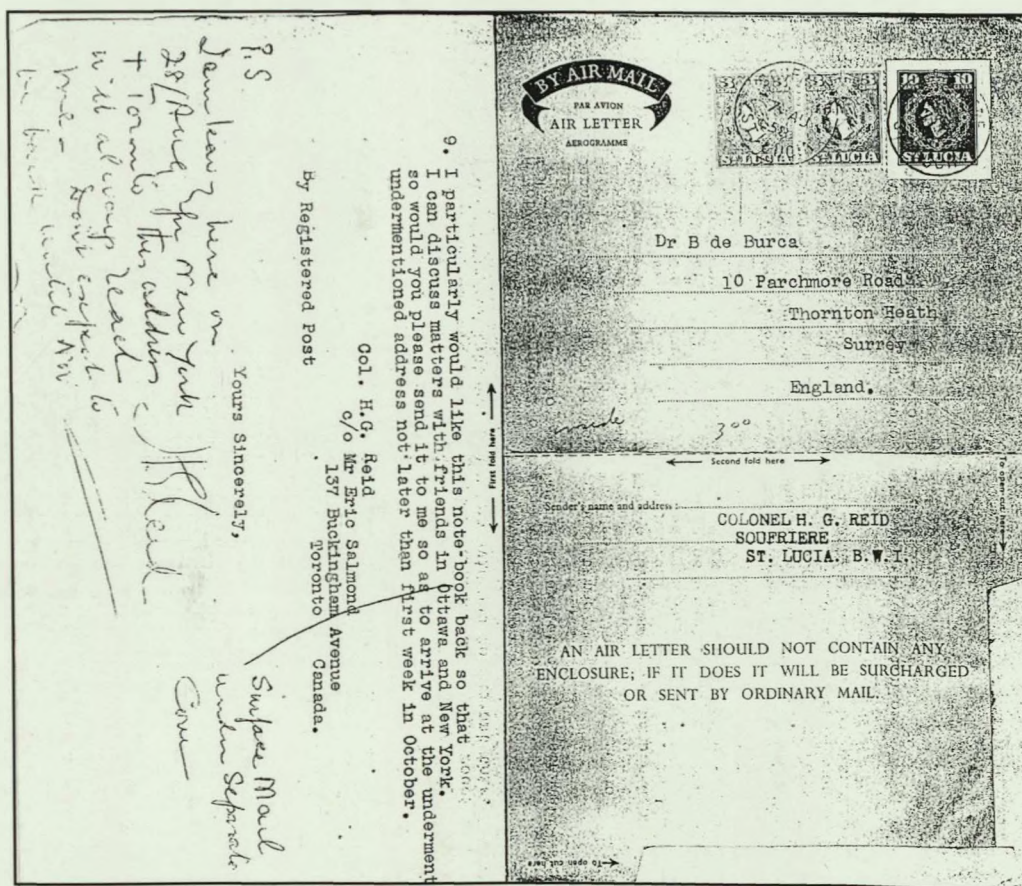 BY AIR MAIL
PAR AVION
AIR LETTER
AEROGRAMME
ST LUCIA
ST LUCIA
10 10
ST LUCIA
Dr B de Burca
10 Parchmore Road
Thornton Heath
Surrey
England.
inside 3 00
Second fold here
To open cut here
Sender's name and address :
COLONEL H. G. REID
SOUFRIERE
ST. LUCIA. B.W.I.
AN AIR LETTER SHOULD NOT CONTAIN ANY
ENCLOSURE; IF IT DOES IT WILL BE SURCHARGED
OR SENT BY ORDINARY MAIL.
To open cut here
First fold here
9. I particularly would like this note-book back so that
I can discuss matters with friends in Ottawa and New York.
so would you please send it to me so as to arrive at the underment
undermentioned address not later than first week in October.
Col. H.G. Reid
c/o Mr Eric Salmond
137 Buckingham Avenue
Toronto Canada.
By Registered Post
Surface Mail
under Separate
Cover
Yours Sincerely,
HReid
P.S
I am leaving here on
28/Aug for New York
+ Toronto this address
will always reach
me - Dont expect to
be back until